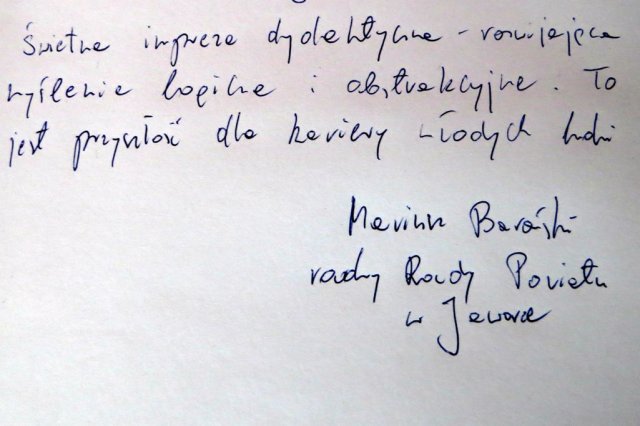 Świetna impreza dydaktyczna - rozwijająca
myślenie logiczne i abstrakcyjne. To
jest przyszłość dla kariery młodych ludzi
Mariusz
radny Rady Powiatu
w Jaworze